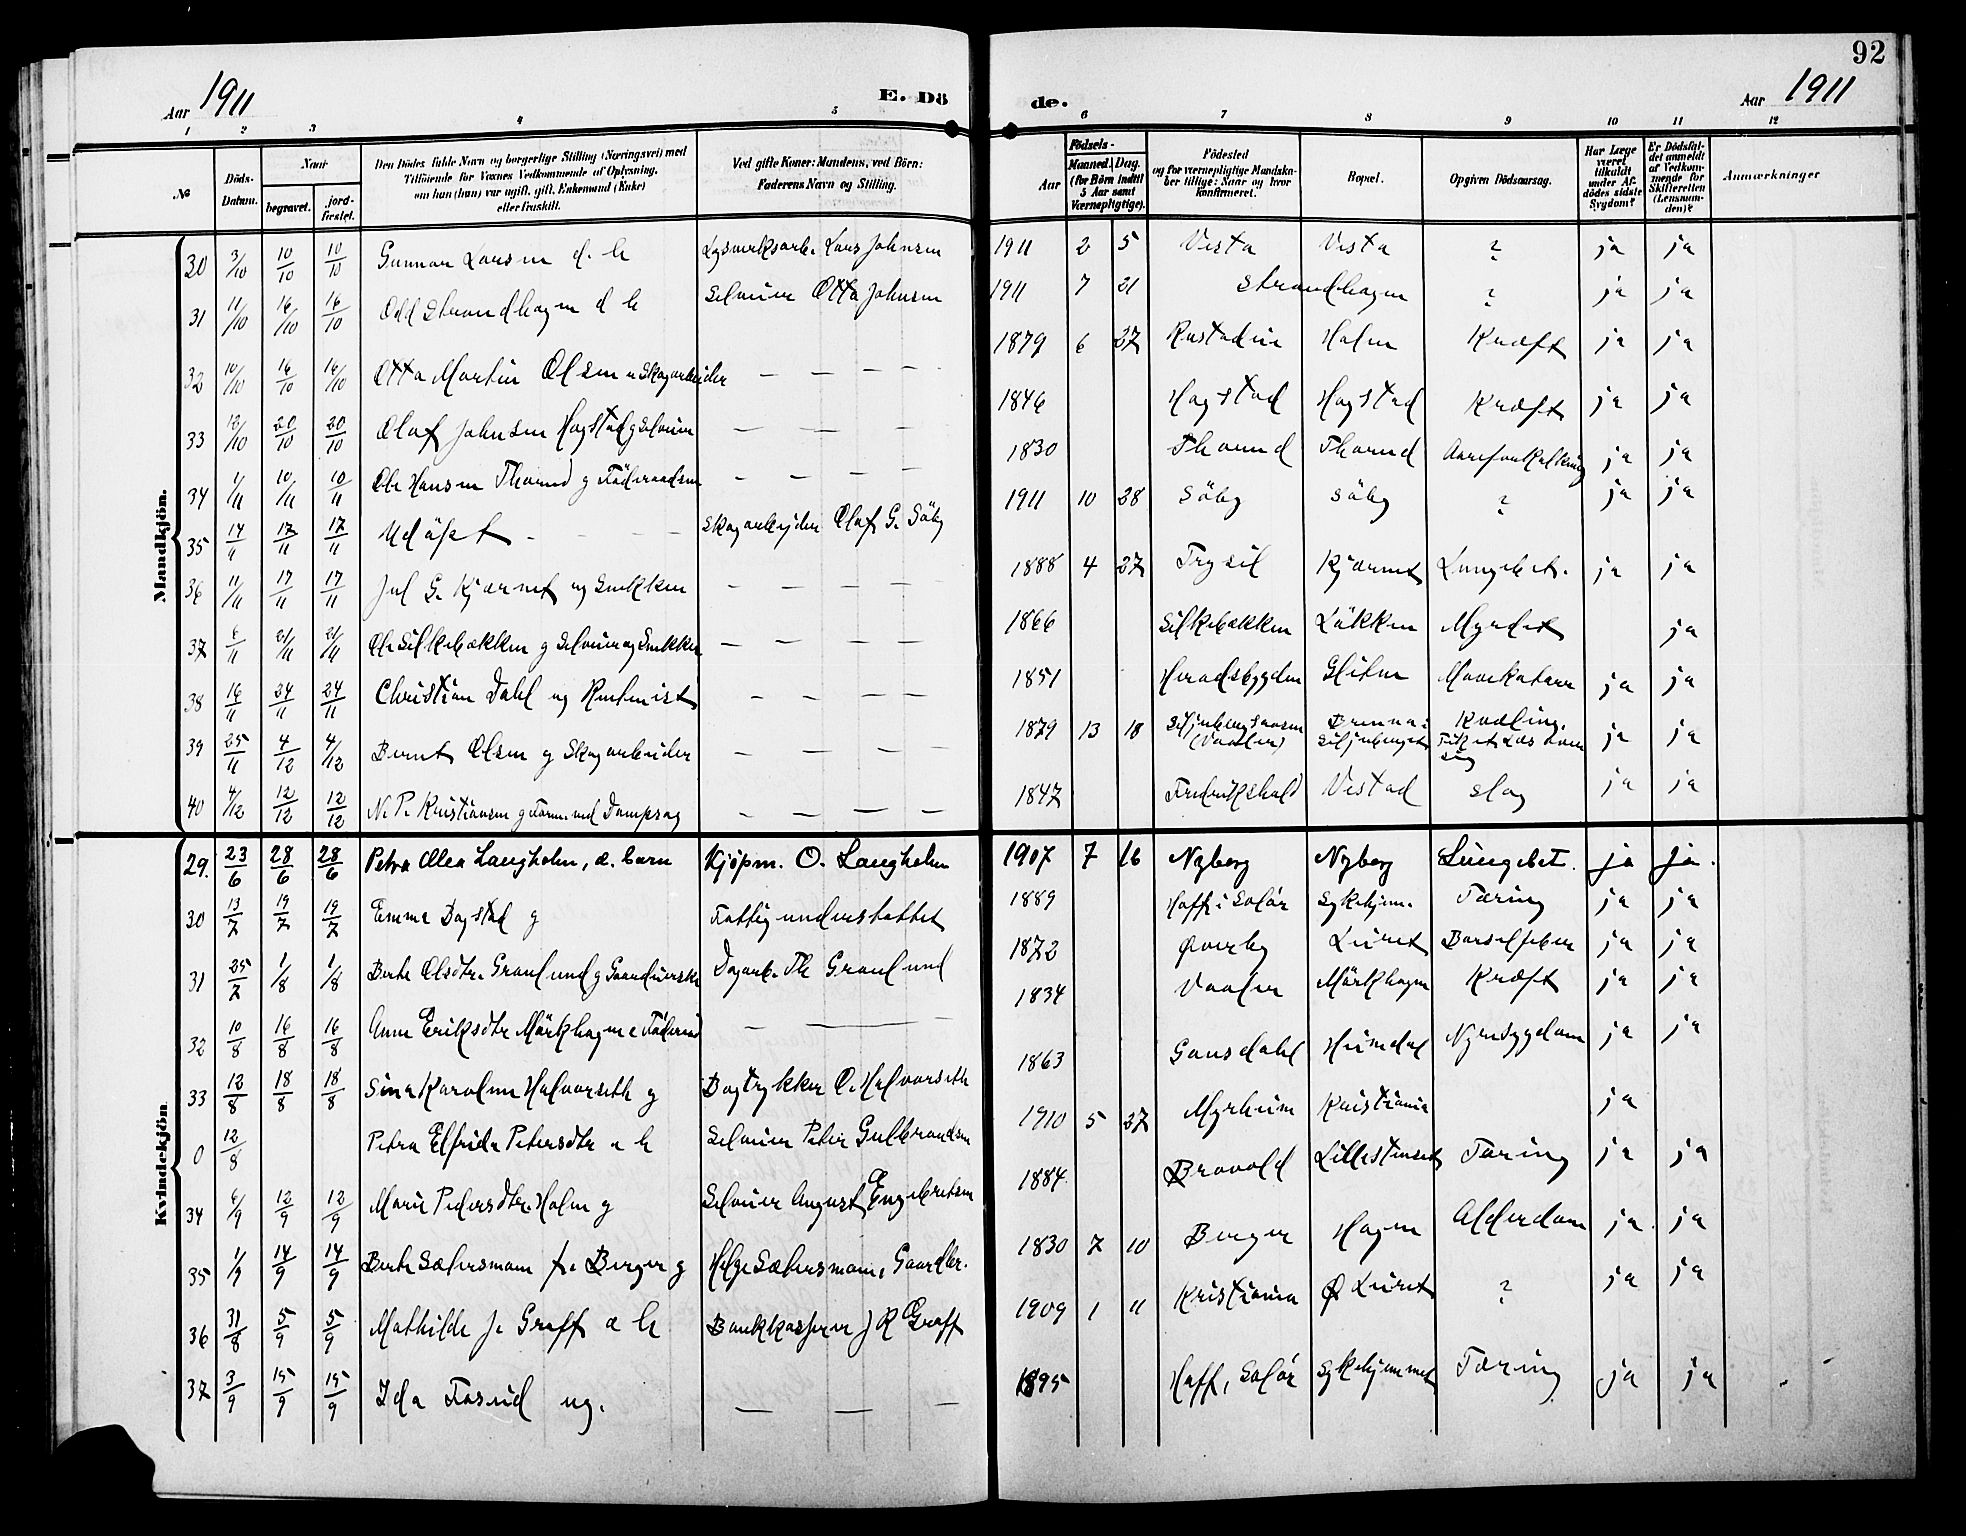 92
Aar 1911 E. Dö de. Aar 1911
1 2 3 4 5 6 7 8 9 10 11 12
№ Döds-Datum. Naar begravet. jord-fæstet. Den Dödes fulde Navn og borgerlige Stilling (Næringsvei) med Tilföiende for Voxnes Vedkommende af Oplysning, om han (hun) var ugift, gift, Enkemand (Enke) eller fraskilt. Ved gifte Koner: Mandens, ved Börn: Faderens Navn og Stilling. Födsels- Aar Maaned. Dag. (for Börn indtil 5 Aar samt Værnepligtige). Födested og for værnepligtige Mandskaber tillige: Naar og hvor konfirmeret. Bopæl. Opgiven Dödsaarsag. Har Læge været tilkaldt under Afdödes sidste Sygdom? Er Dödsfaldet anmeldt af Vedkommende for Skifteretten (Lensmanden)? Anmærkninger
Mandkjön.
30 3/10 10/10 10/10 Gunnar Larsen d. b Lysverksarb. Lars Johnsen 1911 2 5 Vesta Vesta ? ja ja
31 11/10 16/10 16/10 Odd Strandhagen d b Selveier Otto Johnsen 1911 7 21 Strandhagen ? ja ja
32 10/10 16/10 16/10 Otto Martin Olsen Skogarbeider — — — — 1879 6 27 Rustadeie Holm Kræft ja ja
33 12/10 20/10 20/10 Olaf Johnsen Hagstad g selveier — — — 1846 Hagstad Hagstad Kræft ja ja
34 1/11 10/11 10/11 Ole Hansen g Föderaadsm — — — — 1830 Aareforkalkning ja ja
35 14/11 17/11 17/11 Udöpt - - - - Skogarbejder Olaf G. Söby 1911 10 28 Söby Söby ? ja ja
36 11/11 17/11 17/11 Jul G. Kjærnet ug Snekker — — — — 1888 4 27 Trysil Kjærnet Lungebet. ja ja
37 6/11 21/11 21/11 Ole Silkebækken g Selveier og Snekker — — — — 1866 Silkebækken Lökken Myrdet ja
38 16/11 24/11 24/11 Christian Dahl ug Rentenist - — — — 1851 Heradsbygden Mavekatarr ja ja
39 25/11 4/12 4/12 Bernt Olsen g Skogarbeider — — — — 1879 13 18 (Vaaler) Kvæling. ja ja
40 4/12 12/12 12/12 N. P. Kristiansen g Form. ved Dampsag — — — — 1847 Fredrikshald Vestad slag ja ja
Kvindekjön
29. 23/6 28/6 28/6 Petra Olea Langholm, æ. barn Kjøpm. O. Langholm 1907 7 16 Nyberg Nyberg Lungebet. ja ja.
30 13/7 19/7 19/7 Emma Dagstad g Fattigunderstøttet 1889 Hoff i Solør Sykehjem. Tæring ja ja
31 25/7 1/8 1/8 Berte Olsdtr. Graulund g Dagarb. Th Graulund 1872 Øverby Barselfeber ja ja
32 10/8 16/8 16/8 Anne Eriksdtr Mörkhagen e — — 1834 Vaaler Mörkhagen Kræft ja ja
33 12/8 18/8 18/8 Sina Karoline Halvorseth g Bogtrykker O. Halvorseth 1863 Gausdahl Heimdal Nyresygdom ja ja
0 12/8 Petra Elfrida Petersdtr æ b Selveier Peter Gulbrandsen 1910 5 27 Myrheim Kristiania ja
34 6/9 12/9 12/9 Marie Pedersdtr. Holm g Selveier August Engebretsen 1884. Bravold Tæring ja ja
35 1/9 14/9 14/9 Berte Sætersmoen f. Berger g Helge Sætersmoen, Gaardbr. 1830 7 10 Berger Hagen Alderdom ja ja
36 31/8 5/9 5/9 Mathilde J. Graff æ b Bankkasserer J R Graff 1909 1 11 Kristiania ? ja ja
37 3/9 15/9 15/9 Ida Fosrud ug. — — — 1895 Hoff, Solør Sykehjemmet Tæring ja ja